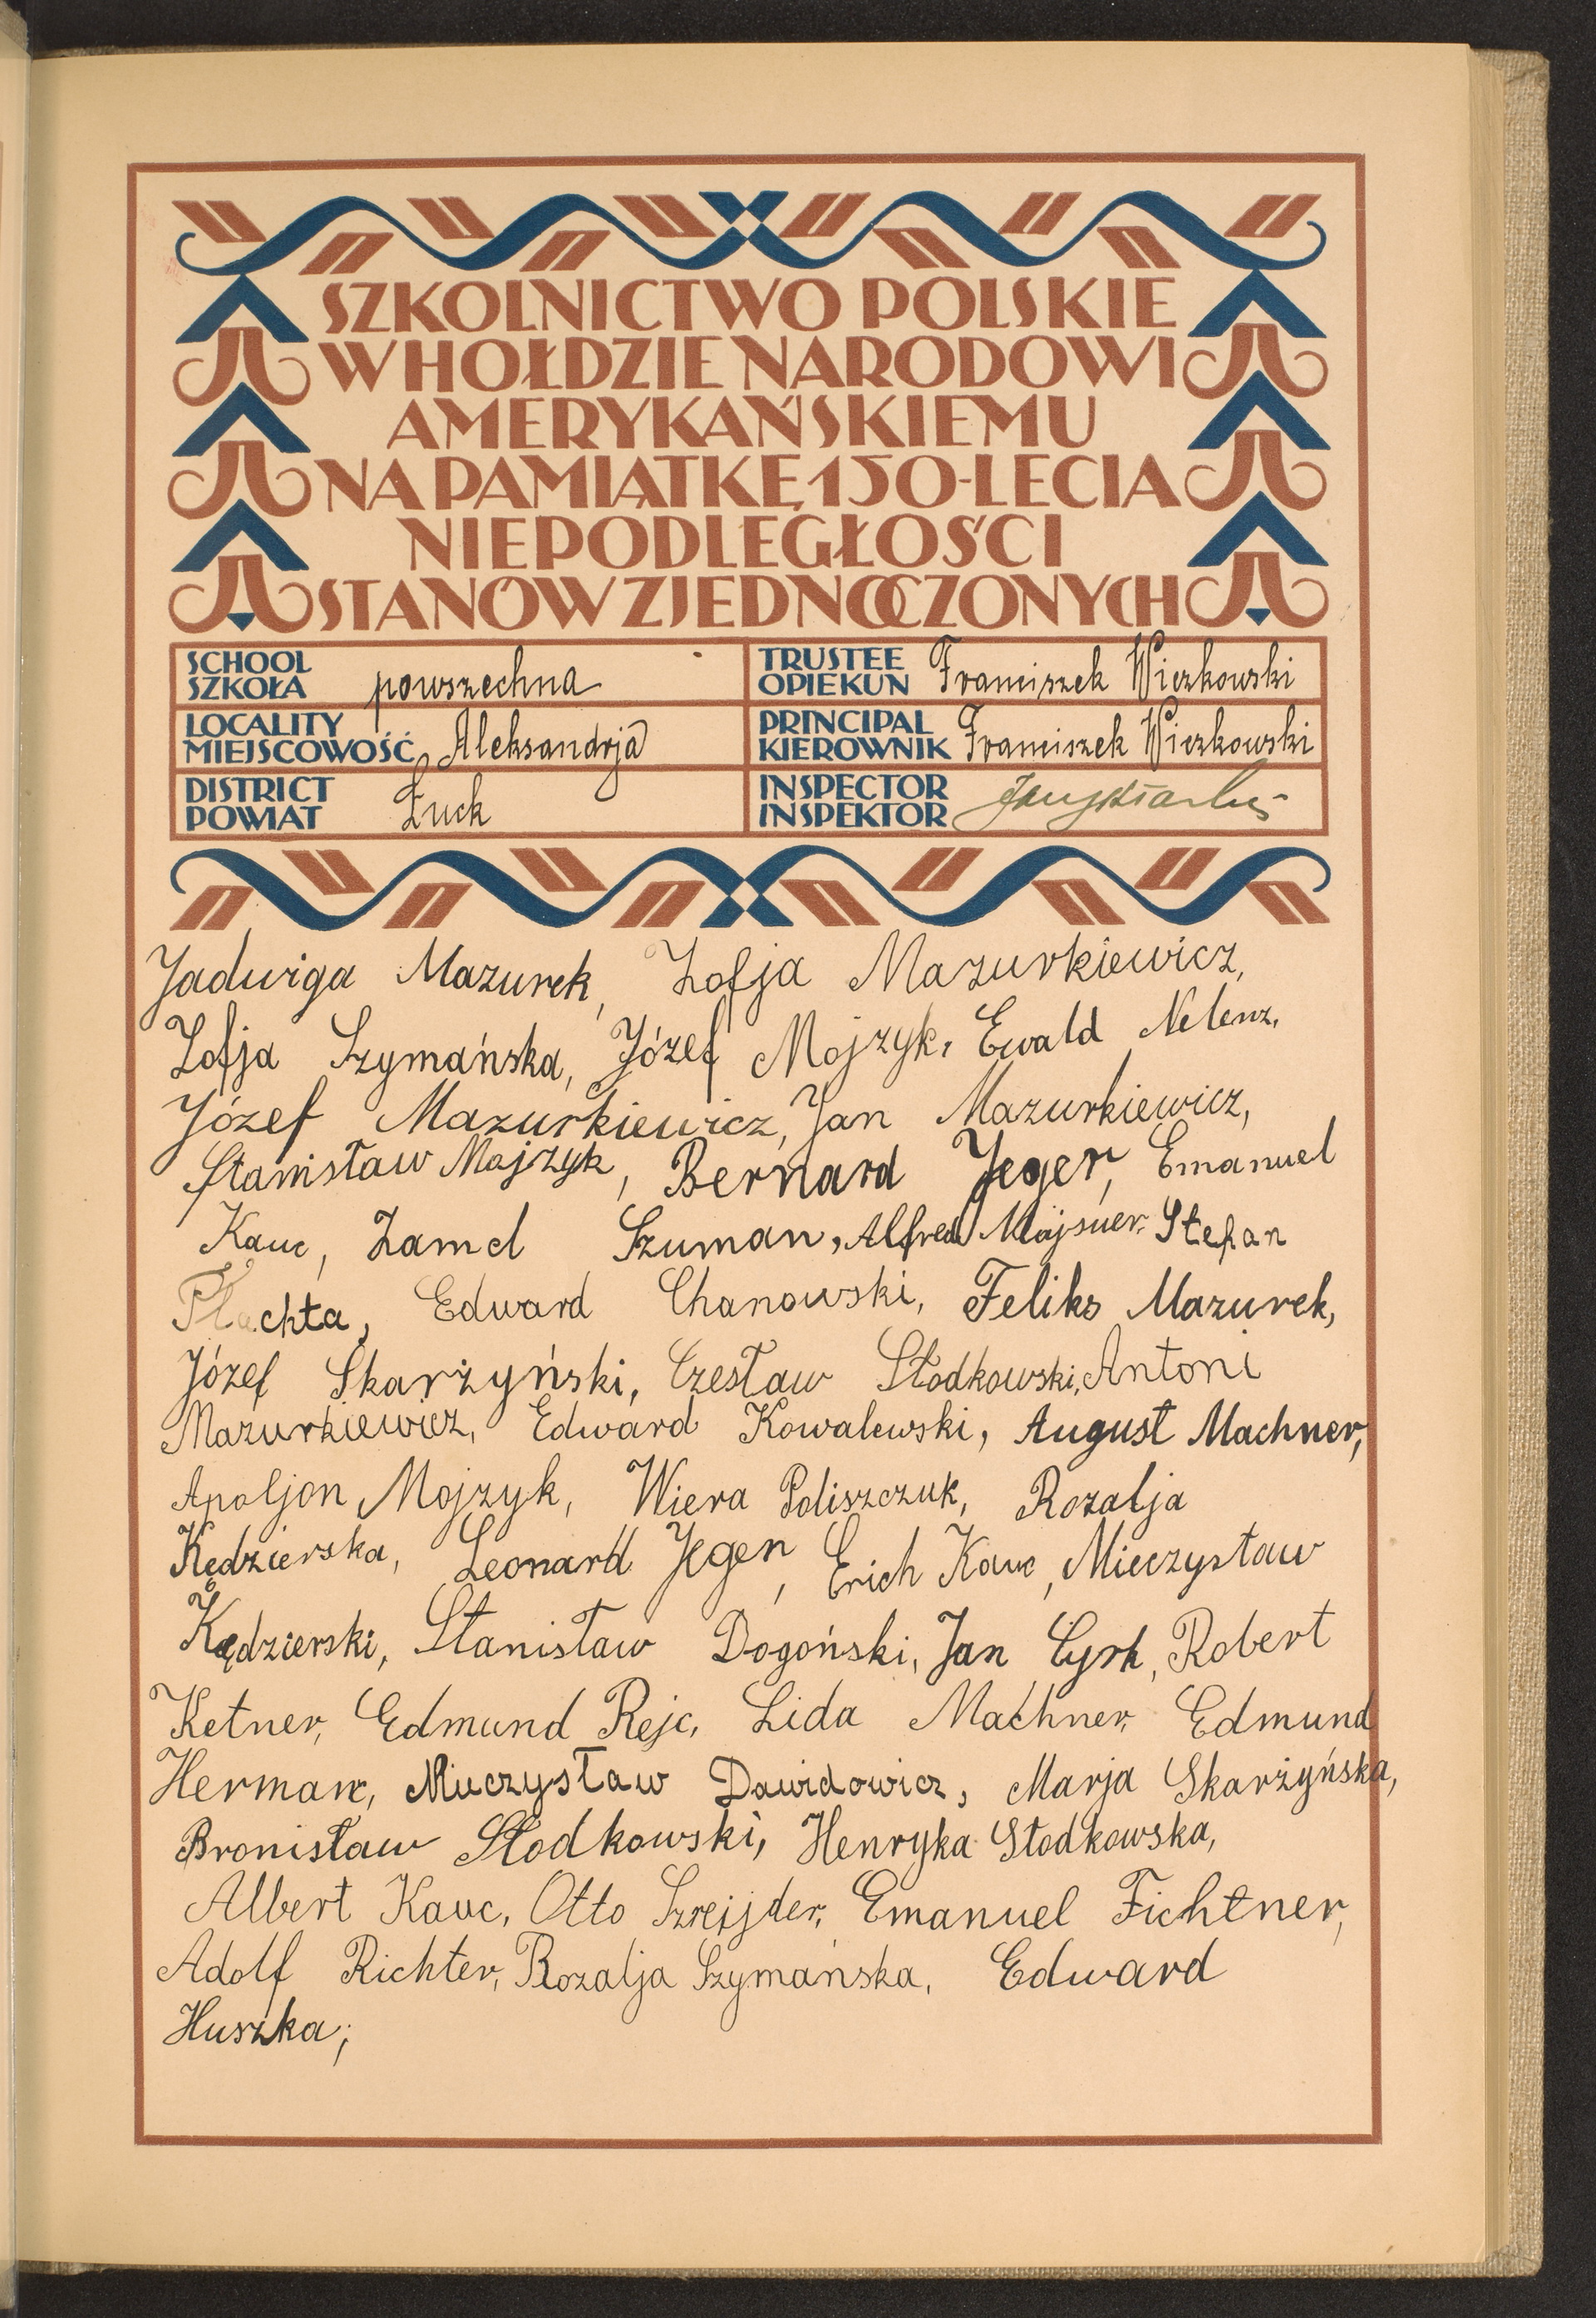 SZKOLNICTWO POLSKIE
W HOŁDZIE NARODOWI
AMERYKAŃSKIEMU
NA PAMIĄTKĘ 150-LECIA
NIEPODLEGŁOŚCI
STANÓW ZJEDNOCZONYCH
SCHOOL
SZKOŁA powszechna
TRUSTEE
OPIEKUN Franciszek Wieżkowski
LOCALITY
MIEJSCOWOŚĆ Aleksandrja
PRINCIPAL
KIEROWNIK Franciszek Wieżkowski
DISTRICT
POWIAT Łuck
INSPECTOR
INSPEKTOR
Jadwiga Mazurek, Zofja Mazurkiewicz,
Zofja Szymańska, Józef Mojzyk, Ewald Nelenz,
Józef Mazurkiewicz, Jan Mazurkiewicz,
Stanisław Mojzyk, Bernard Jeger, Emanuel
Kauc, Zamel Szuman, Alfred Majsner, Stefan
Płachta, Edward Chanowski, Feliks Mazurek,
Józef Skarżyński, Czesław Słodkowski, Antoni
Mazurkiewicz, Edward Kowalewski, August Machner,
Apoljon Mojzyk, Wiera Poliszczuk, Rozalja
Kędzierska, Leonard Jegen, Erich Kauc, Mieczysław
Kędzierski, Stanisław Dogoński, Jan Cyrk, Robert
Ketner, Edmund Rejc, Lida Machner, Edmund
Herman, Mieczysław Dawidowicz, Marja Skarżyńska,
Bronisław Słodkowski, Henryka Słodkowska,
Albert Kauc, Otto Szrejjder, Emanuel Fichtner,
Adolf Richter, Rozalja Szymańska, Edward
Huszka;